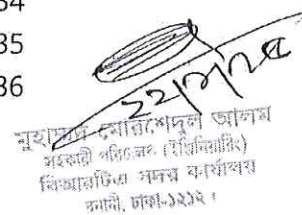 34
35
36
মুহাম্মদ মোরশেদুল আলম
সহকারী পরিচালক (ইঞ্জিনিয়ারিং)
বিআরটিএ সদর কার্যালয়
বনানী, ঢাকা-১২১২।